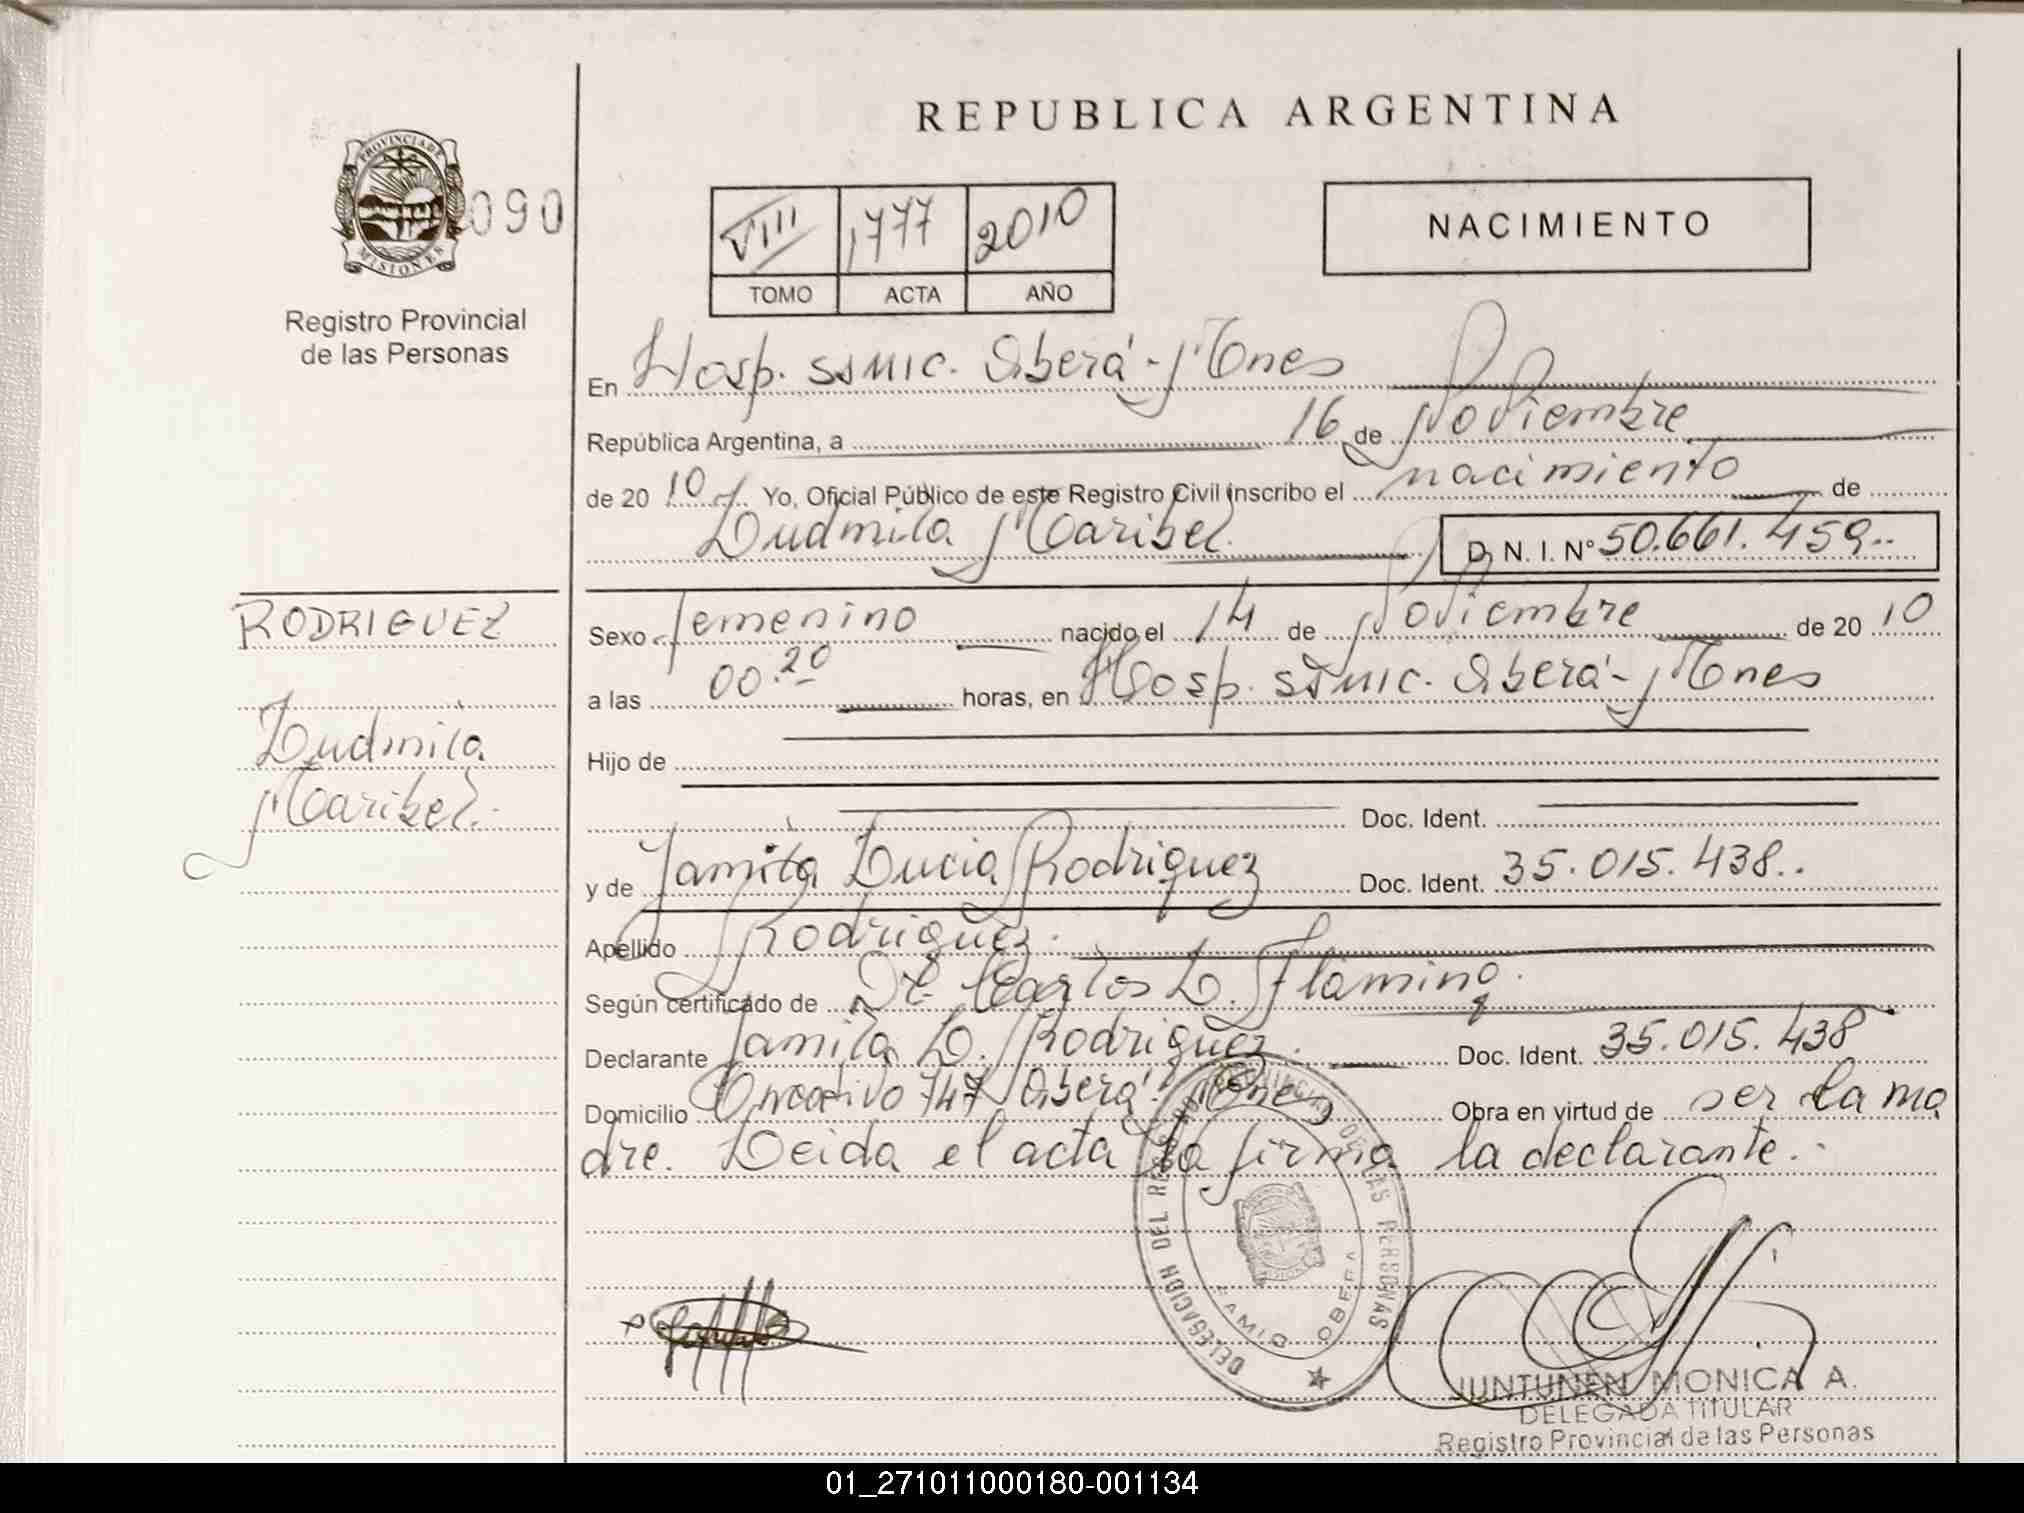 REPUBLICA ARGENTINA
PROVINCIA DE
MISIONES
090
Registro Provincial
de las Personas
VIII 1777 2010
TOMO ACTA AÑO
NACIMIENTO
En Hosp. SSMIC. Oberá - Mnes
República Argentina, a 16 de Noviembre
de 20 10 Yo, Oficial Público de este Registro Civil inscribo el nacimiento de
Ludmila Maribel D. N. I. Nº 50.661.459..
RODRIGUEZ
Ludmila
Maribel.
Sexo femenino nacido el 14 de Noviembre de 20 10
a las 00.20 horas, en Hosp. SSMIC. Oberá - Mnes
Hijo de
Doc. Ident.
y de Jamila Lucia Rodriguez Doc. Ident. 35.015.438..
Apellido Rodriguez.
Según certificado de Dr. Carlos D. Flaming.
Declarante Jamila L. Rodriguez. Doc. Ident. 35.015.438
Domicilio Oncativo 747 Oberá. Mnes Obra en virtud de ser la ma
dre. Leida el acta la firma la declarante.-
DELEGACION DEL REGISTRO PROVINCIAL DE LAS PERSONAS
OBERA
JUNTUNEN MONICA A.
DELEGADA TITULAR
Registro Provincial de las Personas
01_271011000180-001134